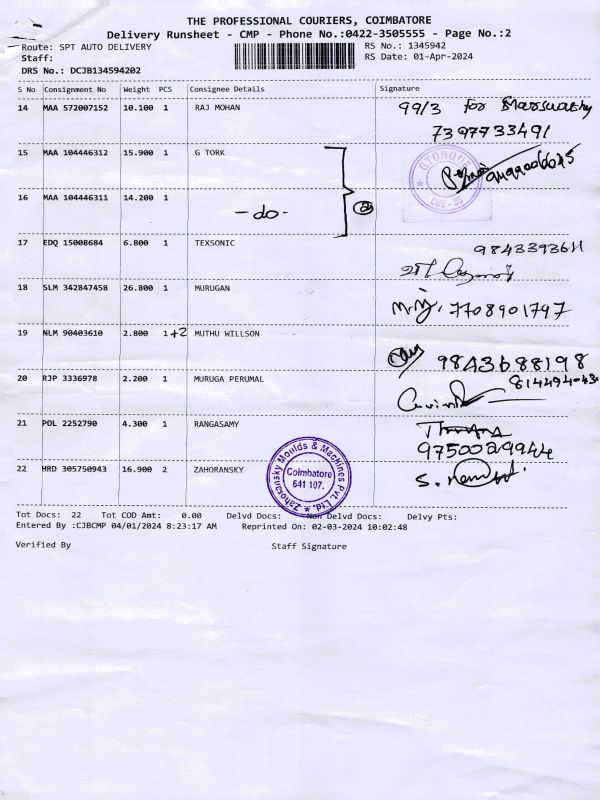 THE PROFESSIONAL COURIERS, COIMBATORE
Delivery Runsheet - CMP - Phone No.:0422-3505555 - Page No.:2
Route: SPT AUTO DELIVERY
RS No.: 1345942
Staff:
RS Date: 01-Apr-2024
DRS No.: DCJB134594202
S No Consignment No Weight PCS Consignee Details Signature
14 MAA 572007152 10.100 1 RAJ MOHAN 99/3 for
7397733491
15 MAA 104446312 15.900 1 G TORK
GTORQUE
CBE - 39
16 MAA 104446311 14.200 1 -do-
17 EDQ 15008684 6.800 1 TEXSONIC 9843393611
18 SLM 342847458 26.800 1 MURUGAN 7708901797
19 NLM 90403610 2.800 1+2 MUTHU WILLSON
9843688198
20 RJP 3336978 2.200 1 MURUGA PERUMAL
21 POL 2252790 4.300 1 RANGASAMY
9750029944
22 HRD 305750943 16.900 2 ZAHORANSKY
Zahoransky Moulds & Machines Pvt. Ltd.
Coimbatore
641 107.
Tot Docs: 22 Tot COD Amt: 0.00 Delvd Docs: Non Delvd Docs: Delvy Pts:
Entered By :CJBCMP 04/01/2024 8:23:17 AM Reprinted On: 02-03-2024 10:02:48
Verified By Staff Signature